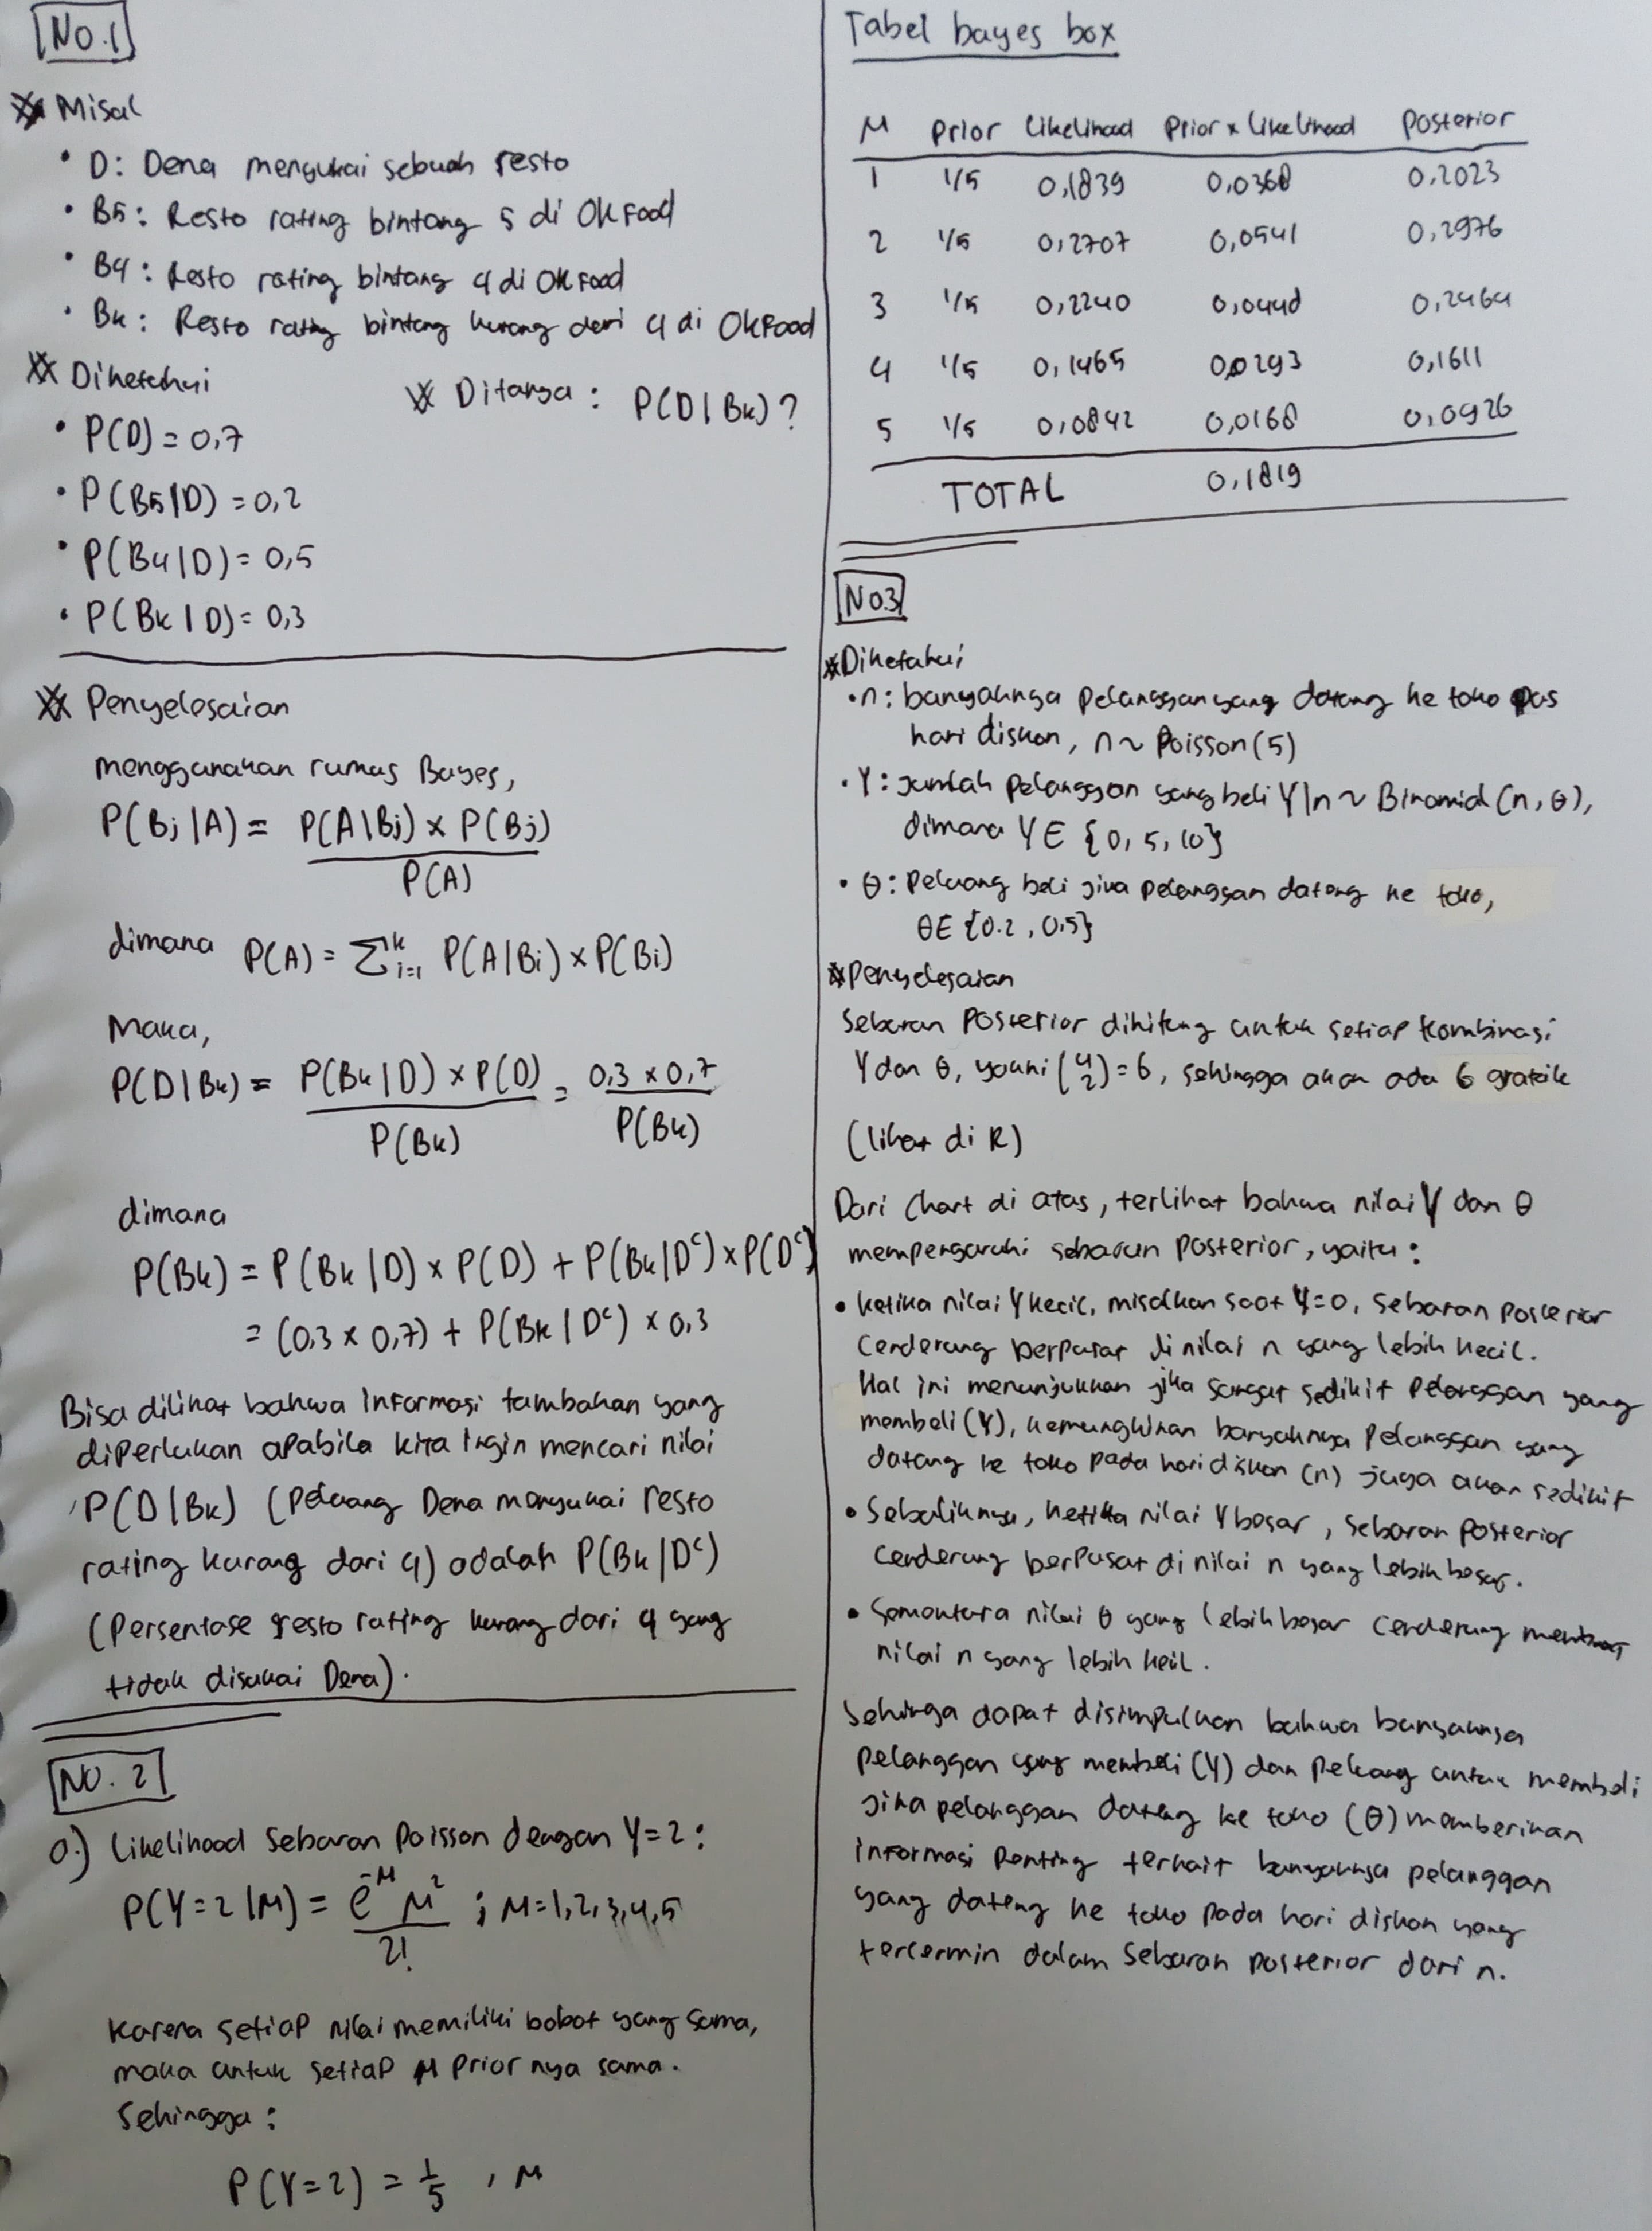 No.1
Misal
• D: Dena menyukai sebuah resto
• B5: Resto rating bintang 5 di OkFood
• B4: Resto rating bintang 4 di OkFood
• Bk: Resto rating bintang kurang dari 4 di OkFood
Diketahui
Ditanya: P(D|Bk)?
• P(D) = 0,7
• P(B5|D) = 0,2
• P(B4|D) = 0,5
• P(Bk|D) = 0,3
Penyelesaian
menggunakan rumus Bayes,
P(Bj|A) = P(A|Bj) × P(Bj) / P(A)
dimana P(A) = ∑ᵏᵢ₌₁ P(A|Bi) × P(Bi)
Maka,
P(D|Bk) = P(Bk|D) × P(D) / P(Bk) = 0,3 × 0,7 / P(Bk)
dimana
P(Bk) = P(Bk|D) × P(D) + P(Bk|Dᶜ) × P(Dᶜ)
= (0,3 × 0,7) + P(Bk|Dᶜ) × 0,3
Bisa dilihat bahwa informasi tambahan yang
diperlukan apabila kita ingin mencari nilai
P(D|Bk) (Peluang Dena menyukai resto
rating kurang dari 4) adalah P(Bk|Dᶜ)
(Persentase resto rating kurang dari 4 yang
tidak disukai Dena).
NO. 2
a.) Likelihood Sebaran Poisson dengan Y=2:
P(Y=2|M) = e⁻ᴹ M² / 2! ; M=1,2,3,4,5
Karena setiap nilai memiliki bobot yang sama,
maka untuk setiap M prior nya sama.
Sehingga:
P(Y=2) = 1/5 , M
Tabel bayes box
M Prior Likelihood Prior × Likelihood Posterior
1 1/5 0,1839 0,0368 0,2023
2 1/5 0,2707 0,0541 0,2976
3 1/5 0,2240 0,0448 0,2464
4 1/5 0,1465 0,0293 0,1611
5 1/5 0,0842 0,0168 0,0926
TOTAL 0,1819
No.3
Diketahui
• n: banyaknya pelanggan yang datang ke toko pas
hari diskon, n ~ Poisson(5)
• Y: Jumlah pelanggan yang beli Y|n ~ Binomial (n, θ),
dimana Y ∈ {0, 5, 10}
• θ: Peluang beli jika pelanggan datang ke toko,
θ ∈ {0.2, 0,5}
Penyelesaian
Sebaran Posterior dihitung untuk setiap kombinasi
Y dan θ, yakni (4 2) = 6, sehingga akan ada 6 grafik
(lihat di R)
Dari Chart di atas, terlihat bahwa nilai Y dan θ
mempengaruhi sebaran posterior, yaitu:
• Ketika nilai Y kecil, misalkan saat Y=0, sebaran posterior
cenderung berpusat di nilai n yang lebih kecil.
Hal ini menunjukkan jika sangat sedikit Pelanggan yang
membeli (Y), kemungkinan banyaknya Pelanggan yang
datang ke toko pada hari diskon (n) juga akan sedikit
• Sebaliknya, ketika nilai Y besar, sebaran posterior
cenderung berpusat di nilai n yang lebih besar.
• Sementara nilai θ yang lebih besar cenderung membuat
nilai n yang lebih kecil.
Sehinga dapat disimpulkan bahwa banyaknya
pelanggan yang membeli (Y) dan Peluang untuk membeli
jika pelanggan datang ke toko (θ) memberikan
informasi penting terkait banyaknya pelanggan
yang datang ke toko pada hari diskon yang
tercermin dalam sebaran posterior dari n.